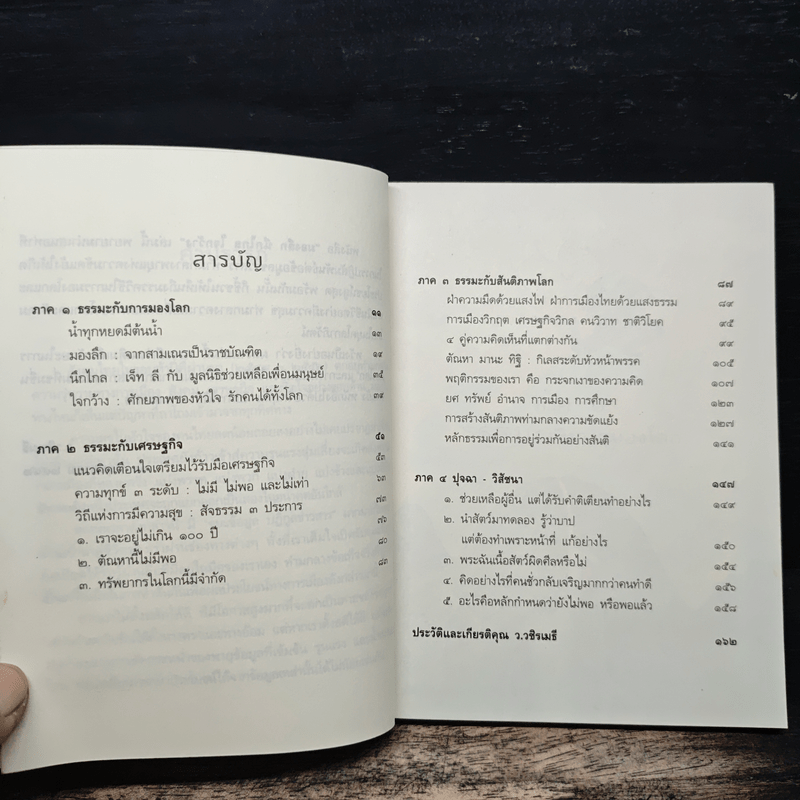 สารบัญ
ภาค ๑ ธรรมะกับการมองโลก ๑๑
น้ำทุกหยดมีต้นน้ำ ๑๓
มองลึก : จากสามเณรเป็นราชบัณฑิต ๑๙
นึกไกล : เจ็ท ลี กับ มูลนิธิช่วยเหลือเพื่อนมนุษย์ ๓๕
ใจกว้าง : ศักยภาพของหัวใจ รักคนได้ทั้งโลก ๓๙
ภาค ๒ ธรรมะกับเศรษฐกิจ ๕๑
แนวคิดเตือนใจเตรียมไว้รับมือเศรษฐกิจ ๕๓
ความทุกข์ ๓ ระดับ : ไม่มี ไม่พอ และไม่เท่า ๖๓
วิถีแห่งการมีความสุข : สัจธรรม ๓ ประการ ๗๓
๑. เราจะอยู่ไม่เกิน ๑๐๐ ปี ๗๖
๒. ตัณหานี้ไม่มีพอ ๘๐
๓. ทรัพยากรในโลกนี้มีจำกัด ๘๓
ภาค ๓ ธรรมะกับสันติภาพโลก ๘๗
ฝ่าความมืดด้วยแสงไฟ ฝ่าการเมืองไทยด้วยแสงธรรม ๘๙
การเมืองวิกฤต เศรษฐกิจวิกล คนวิวาท ชาติวิโยค ๙๕
๔ คู่ความคิดเห็นที่แตกต่างกัน ๙๙
ตัณหา มานะ ทิฐิ : กิเลสระดับหัวหน้าพรรค ๑๐๕
พฤติกรรมของเรา คือ กระจกเงาของความคิด ๑๐๗
ยศ ทรัพย์ อำนาจ การเมือง การศึกษา ๑๒๓
การสร้างสันติภาพท่ามกลางความขัดแย้ง ๑๒๗
หลักธรรมเพื่อการอยู่ร่วมกันอย่างสันติ ๑๔๑
ภาค ๔ ปุจฉา - วิสัชนา ๑๔๗
๑. ช่วยเหลือผู้อื่น แต่ได้รับคำติเตียนทำอย่างไร ๑๔๙
๒. นำสัตว์มาทดลอง รู้ว่าบาป
แต่ต้องทำเพราะหน้าที่ แก้อย่างไร ๑๕๐
๓. พระฉันเนื้อสัตว์ผิดศีลหรือไม่ ๑๕๔
๔. คิดอย่างไรที่คนชั่วกลับเจริญมากกว่าคนทำดี ๑๕๖
๕. อะไรคือหลักกำหนดว่ายังไม่พอ หรือพอแล้ว ๑๕๘
ประวัติและเกียรติคุณ ว.วชิรเมธี ๑๖๒